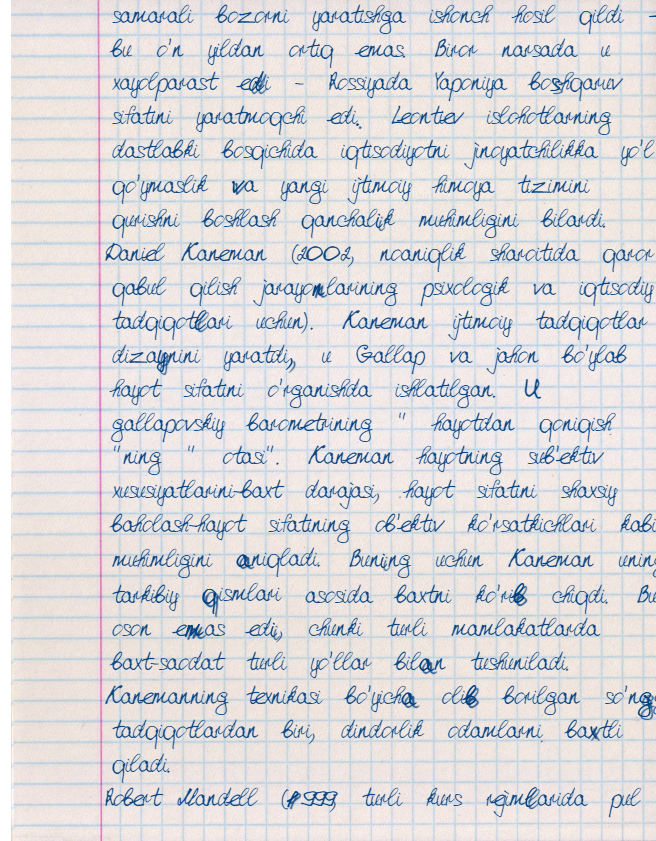 samarali bozorni yaratishga ishonch hosil qildi -
bu o'n yildan ortiq emas. Biror narsada u
xayolparast edi - Rossiyada Yaponiya boshqaruv
sifatini yaratmoqchi edi. Leontiev islohotlarning
dastlabki bosqichida iqtisodiyotni jinoyatchilikka yo'l
qo'ymaslik va yangi ijtimoiy himoya tizimini
qurishni boshlash qanchalik muhimligini bilardi.
Daniel Kaneman (2002, noaniqlik sharoitida qaror
qabul qilish jarayonlarining psixologik va iqtisodiy
tadqiqotlari uchun). Kaneman ijtimoiy tadqiqotlar
dizaynini yaratdi, u Gallap va jahon bo'ylab
hayot sifatini o'rganishda ishlatilgan. U
gallapovskiy barometrining " hayotdan qoniqish
"ning " otasi". Kaneman hayotning sub'ektiv
xususiyatlarini-baxt darajasi, hayot sifatini shaxsiy
baholash-hayot sifatining ob'ektiv ko'rsatkichlari kabi
muhimligini aniqladi. Buning uchun Kaneman uning
tarkibiy qismlari asosida baxtni ko'rib chiqdi. Bu
oson emas edi, chunki turli mamlakatlarda
baxt-saodat turli yo'llar bilan tushuniladi.
Kanemanning texnikasi bo'yicha olib borilgan so'nggi
tadqiqotlardan biri, dindorlik odamlarni baxtli
qiladi.
Robert Mandell (1999, turli kurs rejimlarida pul